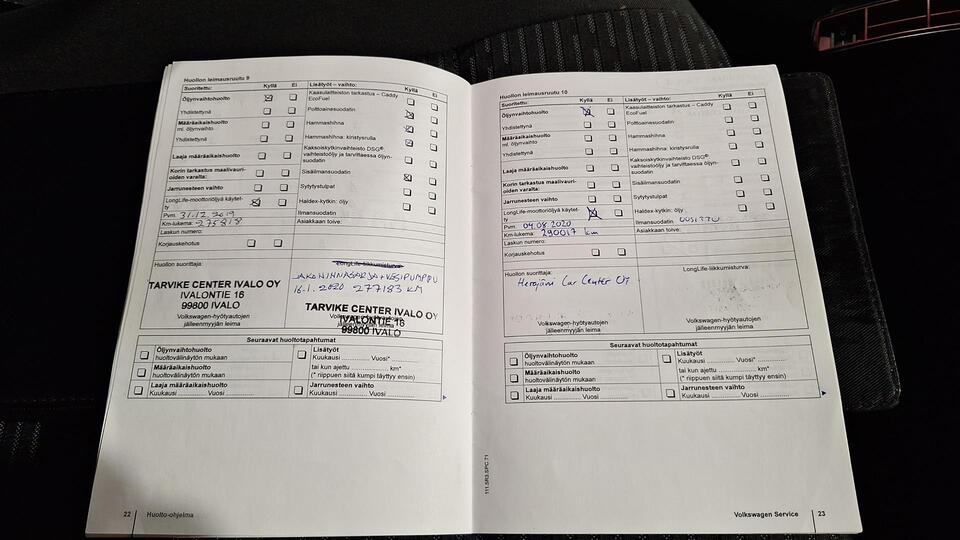 Huollon leimausruutu 9
Suoritettu: Kyllä Ei
Öljynvaihtohuolto
Yhdistettynä
Määräaikaishuolto
ml. öljynvaihto
Yhdistettynä
Laaja määräaikaishuolto
Korin tarkastus maalivauri-
oiden varalta:
Jarrunesteen vaihto
LongLife-moottoriöljyä käytet-
ty
Pvm. 31.12.2019
Km-lukema: 275818
Laskun numero:
Korjauskehotus
Lisätyöt – vaihto: Kyllä Ei
Kaasulaitteiston tarkastus – Caddy
EcoFuel
Polttoainesuodatin
Hammashihna
Hammashihna: kiristysrulla
Kaksoiskytkinvaihteisto DSG®:
vaihteistoöljy ja tarvittaessa öljyn-
suodatin
Sisäilmansuodatin
Sytytystulpat
Haldex-kytkin: öljy
Ilmansuodatin:
Asiakkaan toive:
Huollon suorittaja:
TARVIKE CENTER IVALO OY
IVALONTIE 16
99800 IVALO
Volkswagen-hyötyautojen
jälleenmyyjän leima
LongLife-liikkumisturva:
JAKOHIHNASARJA + VESIPUMPPU
16.1.2020 277183 KM
TARVIKE CENTER IVALO OY
IVALONTIE 16
99800 IVALO
Volkswagen-hyötyautojen
jälleenmyyjän leima
Seuraavat huoltotapahtumat
Öljynvaihtohuolto
huoltovälinäytön mukaan
Määräaikaishuolto
huoltovälinäytön mukaan
Laaja määräaikaishuolto
Kuukausi ............ Vuosi ............
Lisätyöt
Kuukausi ............ Vuosi* ............
tai kun ajettu ............ km*
(* riippuen siitä kumpi täyttyy ensin)
Jarrunesteen vaihto
Kuukausi ............ Vuosi ............
22 Huolto-ohjelma
Huollon leimausruutu 10
Suoritettu: Kyllä Ei
Öljynvaihtohuolto
Yhdistettynä
Määräaikaishuolto
ml. öljynvaihto
Yhdistettynä
Laaja määräaikaishuolto
Korin tarkastus maalivauri-
oiden varalta:
Jarrunesteen vaihto
LongLife-moottoriöljyä käytet-
ty
Pvm. 04.08.2020
Km-lukema: 290017 km
Laskun numero:
Korjauskehotus
Lisätyöt – vaihto: Kyllä Ei
Kaasulaitteiston tarkastus – Caddy
EcoFuel
Polttoainesuodatin
Hammashihna
Hammashihna: kiristysrulla
Kaksoiskytkinvaihteisto DSG®:
vaihteistoöljy ja tarvittaessa öljyn-
suodatin
Sisäilmansuodatin
Sytytystulpat
Haldex-kytkin: öljy
Ilmansuodatin: UUSITTU
Asiakkaan toive:
Huollon suorittaja:
Car Center OY
Volkswagen-hyötyautojen
jälleenmyyjän leima
LongLife-liikkumisturva:
Volkswagen-hyötyautojen
jälleenmyyjän leima
Seuraavat huoltotapahtumat
Öljynvaihtohuolto
huoltovälinäytön mukaan
Määräaikaishuolto
huoltovälinäytön mukaan
Laaja määräaikaishuolto
Kuukausi ............ Vuosi ............
Lisätyöt
Kuukausi ............ Vuosi* ............
tai kun ajettu ............ km*
(* riippuen siitä kumpi täyttyy ensin)
Jarrunesteen vaihto
Kuukausi ............ Vuosi ............
111.5R3.SPC.71
Volkswagen Service 23